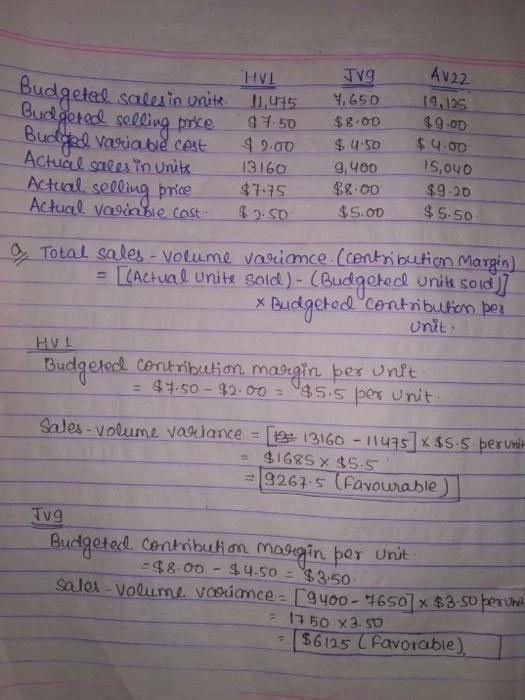 HV1 JV9 AV22
Budgeted sales in units. 11,475 7,650 19,125
Budgeted selling price $7.50 $8.00 $9.00
Budged variable cost $2.00 $4.50 $4.00
Actual sales in units 13160 9,400 15,040
Actual selling price $7.75 $8.00 $9.20
Actual variable cost. $2.50 $5.00 $5.50
a, Total sales-volume variance (contribution Margin)
= [(Actual units sold) - (Budgeted units sold)]
x Budgeted contribution per
unit.
HV1
Budgeted contribution margin per unit.
= $7.50 - $2.00 = $5.5 per unit.
Sales-volume variance = [13160 - 11475] x $5.5 per unit
= $1685 x $5.5
= 9267.5 (Favourable)
JV9
Budgeted contribution margin per unit.
= $8.00 - $4.50 = $3.50.
Sales-volume variance = [9400 - 7650] x $3.50 per unit
= 1750 x 3.50
= $6125 (Favorable).